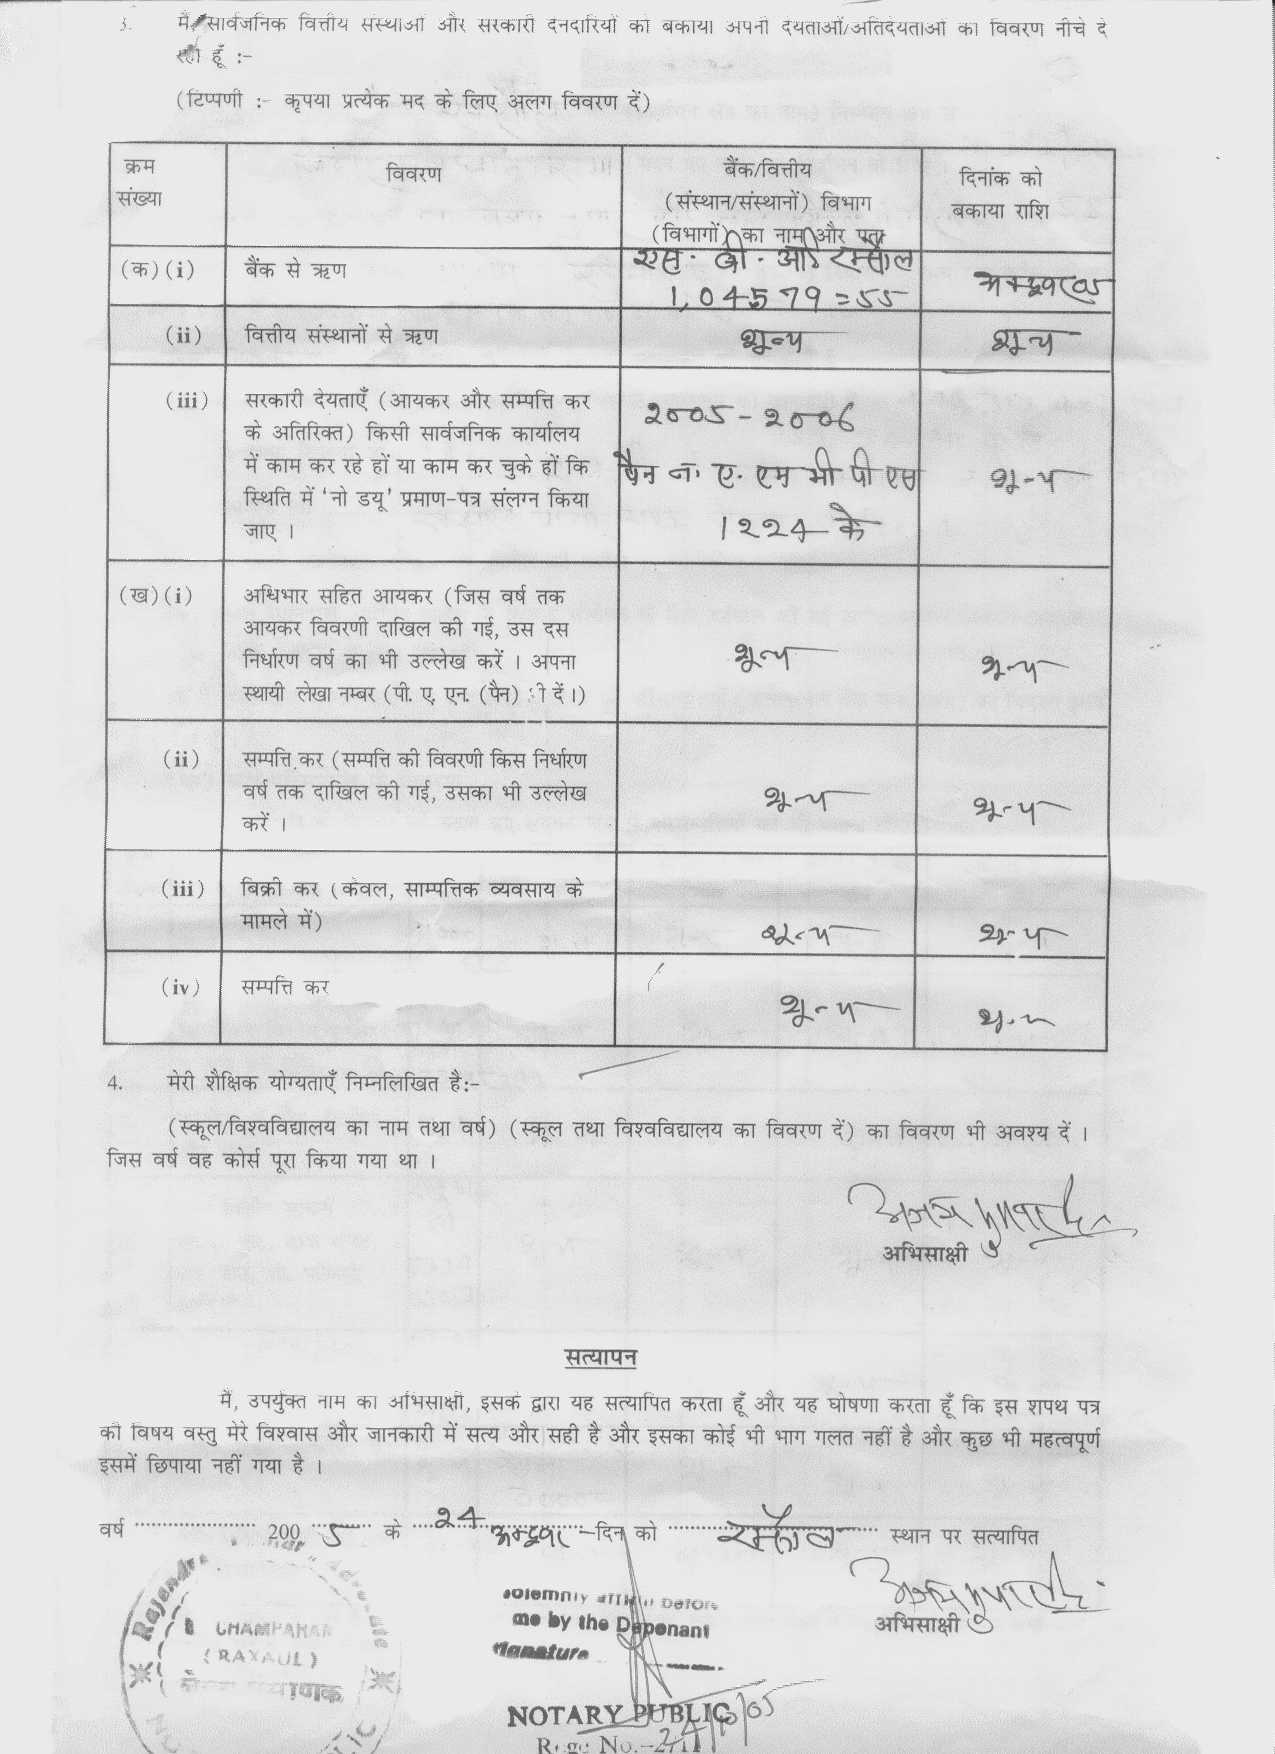 3. मैं सार्वजनिक वित्तीय संस्थाओं और सरकारी देनदारियों को बकाया अपनी देयताओं/अतिदेयताओं का विवरण नीचे दे
रहा हूँ :-
(टिप्पणी :- कृपया प्रत्येक मद के लिए अलग विवरण दें)
क्रम
संख्या
विवरण
बैंक/वित्तीय
(संस्थान/संस्थानों) विभाग
(विभागों) का नाम और पता
दिनांक को
बकाया राशि
(क) (i) बैंक से ऋण
एस. बी. आई रक्सौल
1,04579=55
अक्टूबर 05
(ii) वित्तीय संस्थानों से ऋण शून्य शून्य
(iii) सरकारी देयताएँ (आयकर और सम्पत्ति कर
के अतिरिक्त) किसी सार्वजनिक कार्यालय
में काम कर रहे हों या काम कर चुके हों कि
स्थिति में 'नो डयू' प्रमाण-पत्र संलग्न किया
जाए ।
2005-2006
पैन न. ए. एम बी पी एस
1224 के
शून्य
(ख) (i) अधिभार सहित आयकर (जिस वर्ष तक
आयकर विवरणी दाखिल की गई, उस दस
निर्धारण वर्ष का भी उल्लेख करें । अपना
स्थायी लेखा नम्बर (पी. ए. एन. (पैन) भी दें ।)
शून्य शून्य
(ii) सम्पत्ति कर (सम्पत्ति की विवरणी किस निर्धारण
वर्ष तक दाखिल की गई, उसका भी उल्लेख
करें ।
शून्य शून्य
(iii) बिक्री कर (केवल, साम्पत्तिक व्यवसाय के
मामले में)
शून्य शून्य
(iv) सम्पत्ति कर शून्य शून्य
4. मेरी शैक्षिक योग्यताएँ निम्नलिखित है:-
(स्कूल/विश्वविद्यालय का नाम तथा वर्ष) (स्कूल तथा विश्वविद्यालय का विवरण दें) का विवरण भी अवश्य दें ।
जिस वर्ष वह कोर्स पूरा किया गया था ।
अभिसाक्षी
सत्यापन
मैं, उपर्युक्त नाम का अभिसाक्षी, इसके द्वारा यह सत्यापित करता हूँ और यह घोषणा करता हूँ कि इस शपथ पत्र
की विषय वस्तु मेरे विश्वास और जानकारी में सत्य और सही है और इसका कोई भी भाग गलत नहीं है और कुछ भी महत्वपूर्ण
इसमें छिपाया नहीं गया है ।
वर्ष 200 5 के 24 अक्टूबर दिन को रक्सौल स्थान पर सत्यापित
अभिसाक्षी
CHAMPARAN
(RAXAUL)
Solemnly affirm before
me by the Deponant
Signature
NOTARY PUBLIC
24/10/05
Regd No.